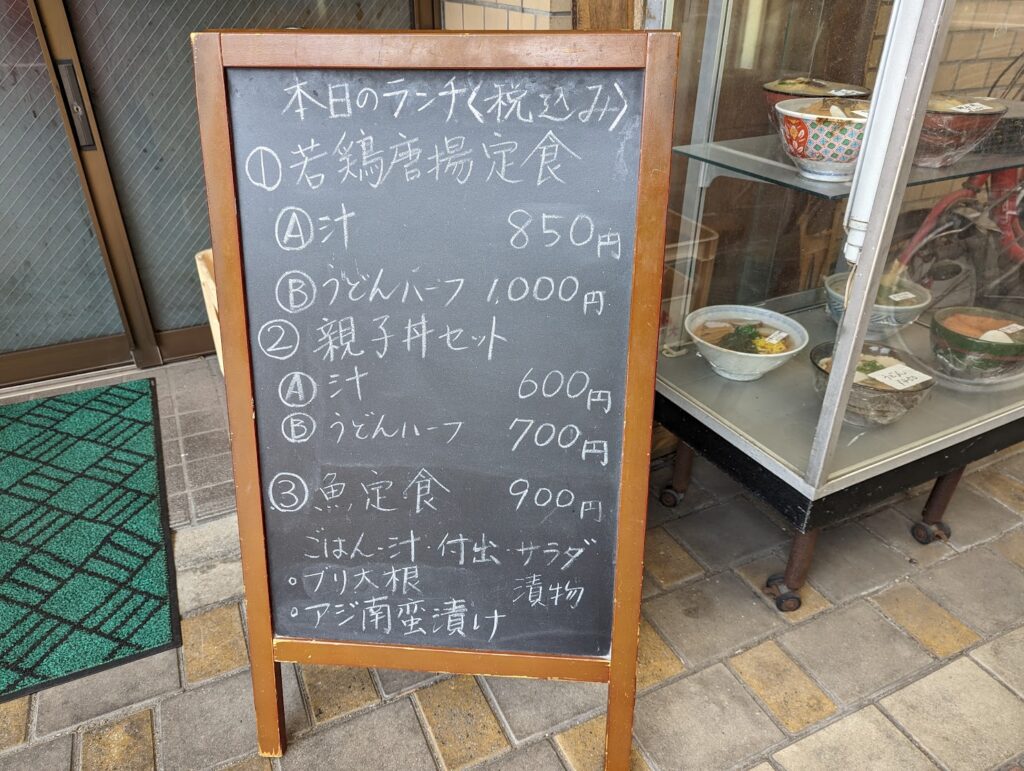 本日のランチ〈税込み〉
①若鶏唐揚定食
Ⓐ汁 850円
Ⓑうどんハーフ 1,000円
②親子丼セット
Ⓐ汁 600円
Ⓑうどんハーフ 700円
③魚定食 900円
ごはん・汁・付出・サラダ
漬物
○ブリ大根
○アジ南蛮漬け